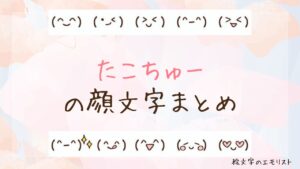 (^⌣^) (•ᴗ•) (>ᴗ<) (^-^) (>ᴗ<)
たこちゅー
の顔文字まとめ
(^-^)✨ (^ᴗ^) (^▽^) (◡ᴗ◡) (♡ᴗ♡)
絵文字のエモリスト